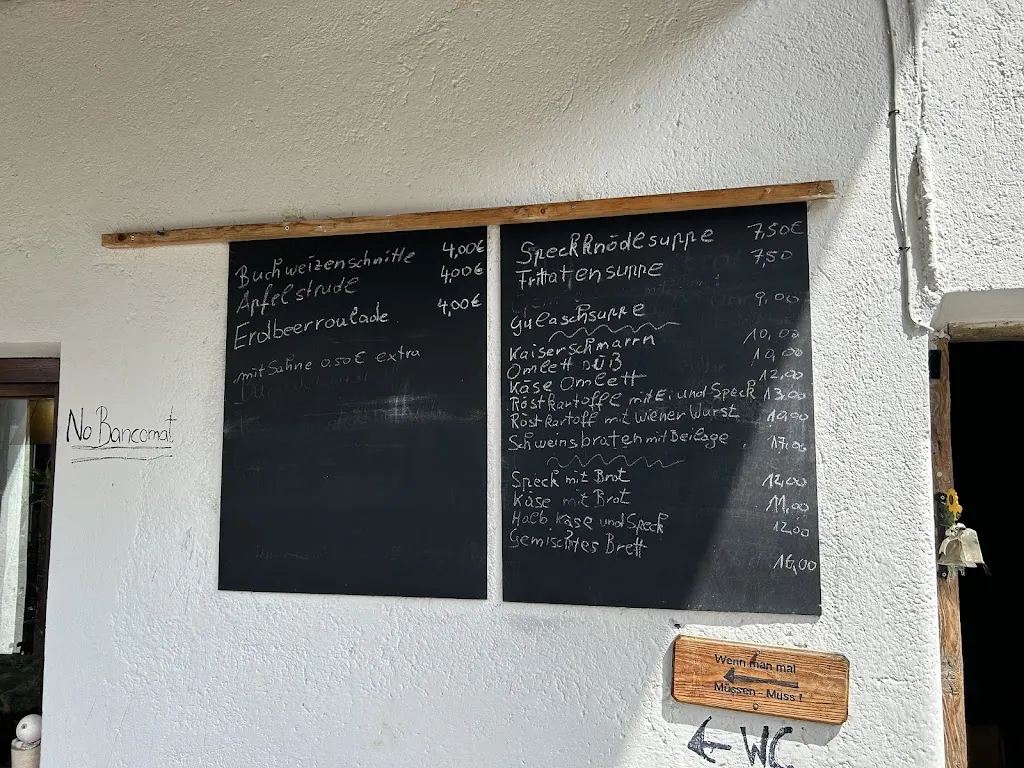 Buchweizenschnitte 4,00€
Apfelstrudel 4,00€
Erdbeerroulade 4,00€
mit Sahne 0.50€ extra
Speckknödelsuppe 7,50€
Frittatensuppe 7,50
Gulaschsuppe 9,00
Kaiserschmarrn 10,00
Omlett süß 10,00
Käse Omlett 12,00
Röstkartoffel mit Ei und Speck 13,00
Röstkartoff mit Wiener Wurst 10,00
Schweinsbraten mit Beilage 17,00
Speck mit Brot 12,00
Käse mit Brot 11,00
Halb Käse und Speck 12,00
Gemischtes Brett 16,00
No Bancomat
Wenn man mal
Müssen - Muss!
WC